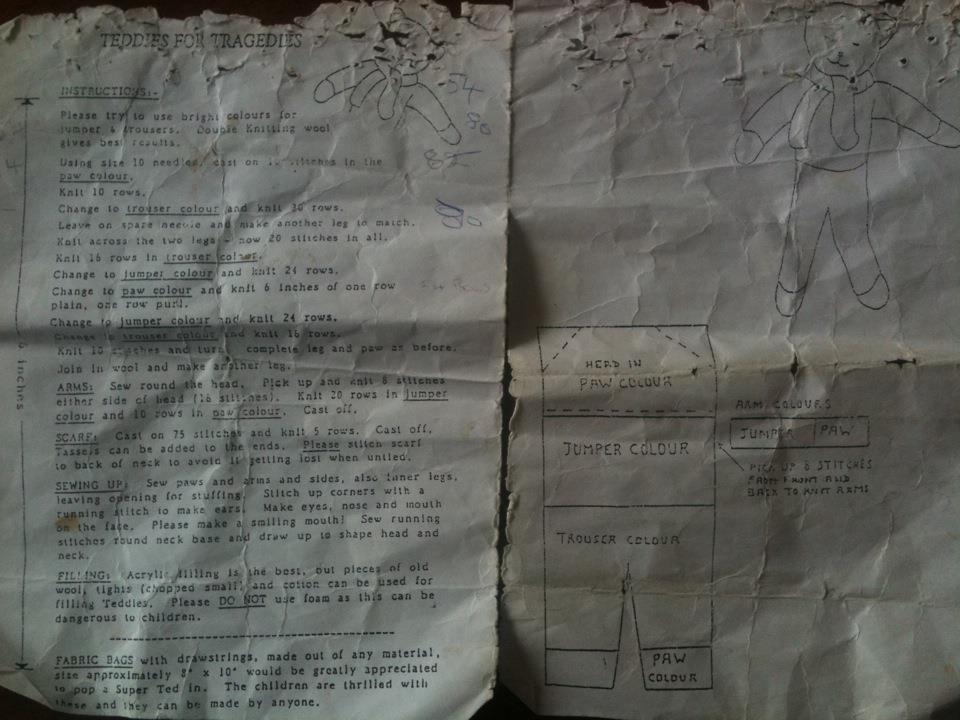 TEDDIES FOR TRAGEDIES
INSTRUCTIONS:-
Please try to use bright colours for
jumper & trousers. Double Knitting wool
gives best results.
Using size 10 needles, cast on stitches in the
paw colour.
Knit 10 rows.
Change to trouser colour and knit 30 rows.
Leave on spare needle and make another leg to match.
Knit across the two legs - now 20 stitches in all.
Knit 16 rows in trouser colour.
Change to jumper colour and knit 24 rows.
Change to paw colour and knit 6 inches of one row
plain, one row purl.
Change to jumper colour and knit 24 rows.
Change to trouser colour and knit 16 rows.
Knit 10 stitches and turn complete leg and paw as before.
Join in wool and make another leg.
ARMS: Sew round the head. Pick up and knit 8 stitches
either side of head (16 stitches). Knit 20 rows in jumper
colour and 10 rows in paw colour. Cast off.
SCARF: Cast on 75 stitches and knit 5 rows. Cast off.
Tassels can be added to the ends. Please stitch scarf
to back of neck to avoid it getting lost when untied.
SEWING UP: Sew paws and arms and sides, also inner legs,
leaving opening for stuffing. Stitch up corners with a
running stitch to make ears. Make eyes, nose and mouth
on the face. Please make a smiling mouth! Sew running
stitches round neck base and draw up to shape head and
neck.
FILLING: Acrylic filling is the best, but pieces of old
wool, tights (chopped small) and cotton can be used for
filling Teddies. Please DO NOT use foam as this can be
dangerous to children.
FABRIC BAGS with drawstrings, made out of any material,
size approximately 8" x 10" would be greatly appreciated
to pop a Super Ted in. The children are thrilled with
these and they can be made by anyone.
inches
54
90
HEAD IN
PAW COLOUR
JUMPER COLOUR
TROUSER COLOUR
PAW
COLOUR
ARM COLOURS
JUMPER PAW
PICK UP 8 STITCHES
FROM FRONT AND
BACK TO KNIT ARMS